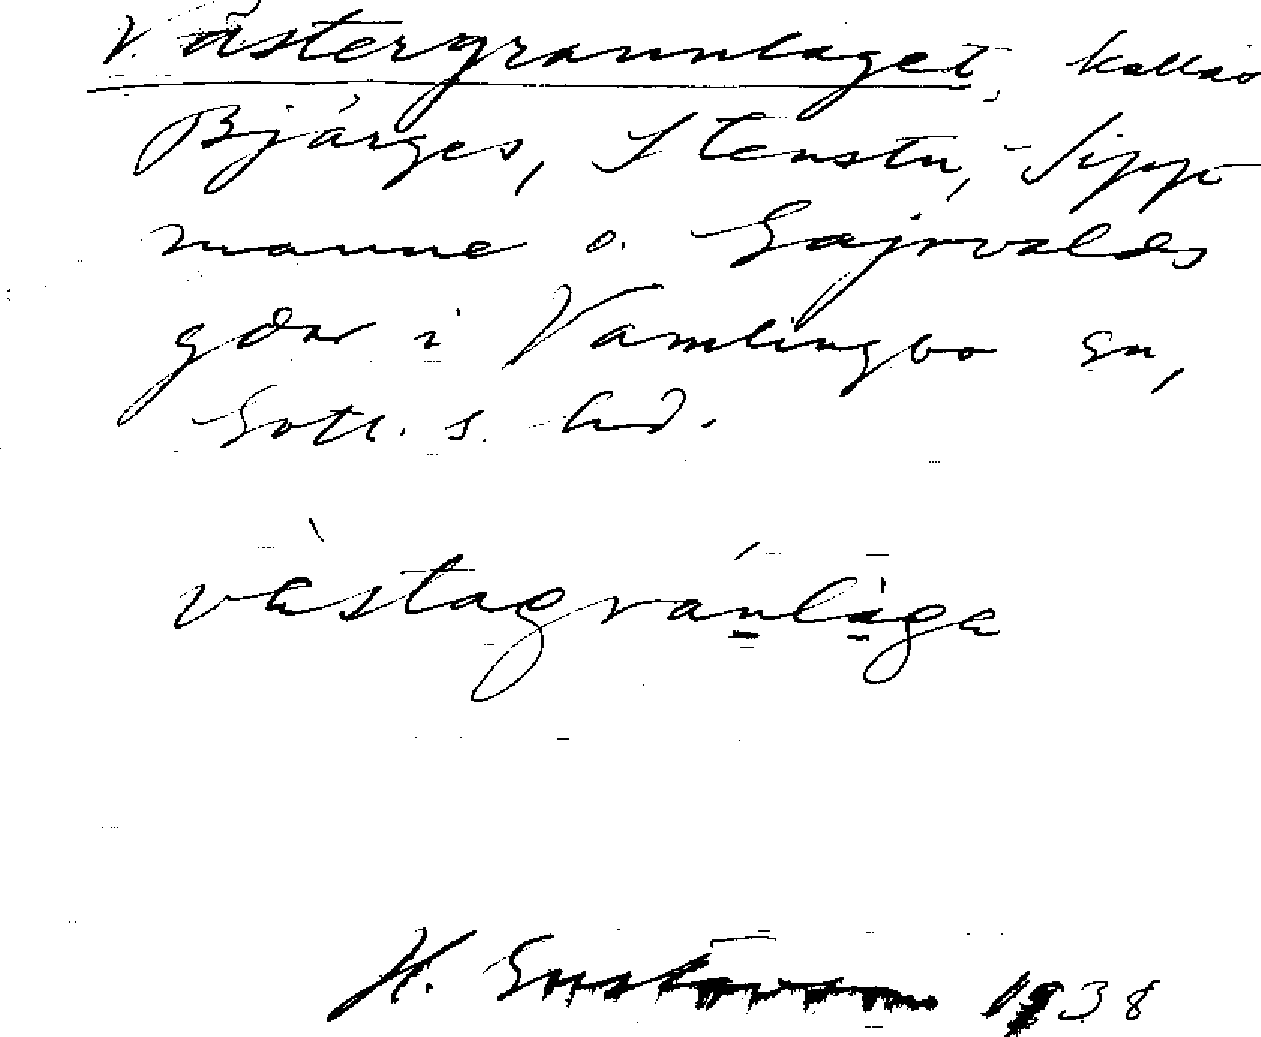 Västergrannlaget, kallas
Bjärges, Stenstu, Sipp-
manne o. Gajrvalds
gdar i Vamlingbo sn,
Gotl. s. hd.
västagránlága
H. Gustavson 1938